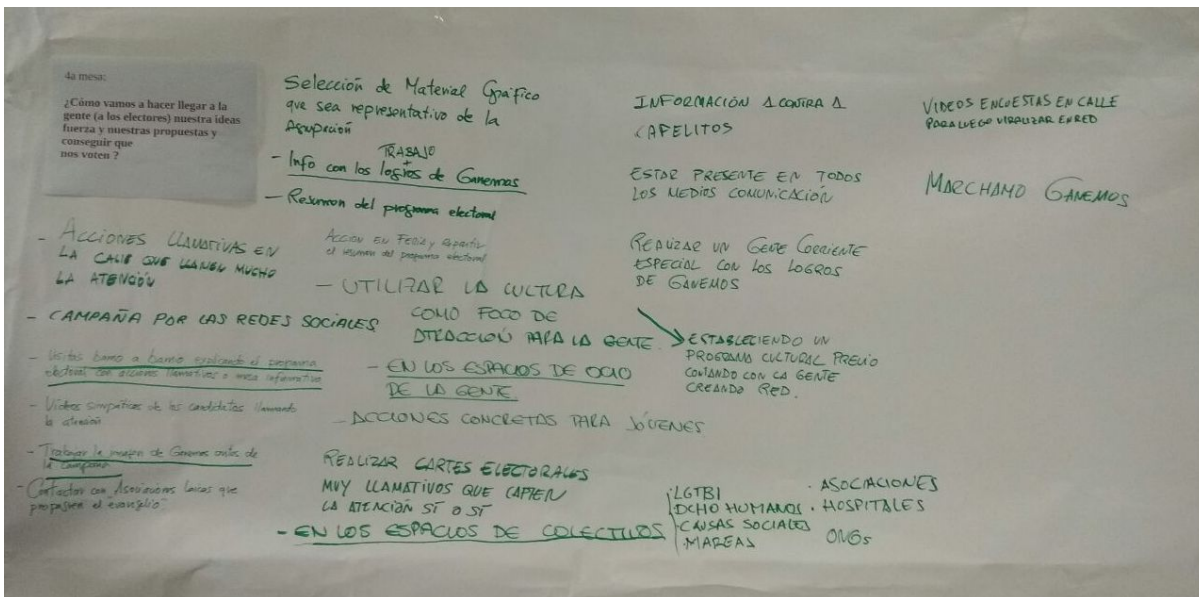 4a mesa:
¿Cómo vamos a hacer llegar a la
gente (a los electores) nuestra ideas
fuerza y nuestras propuestas y
conseguir que
nos voten ?
Selección de Material Gráfico
que sea representativo de la
Agrupación
- Info con los logros de Ganemos
TRABAJO
+
- Resumen del programa electoral
- ACCIONES LLAMATIVAS EN
LA CALLE QUE LLAMEN MUCHO
LA ATENCIÓN
- CAMPAÑA POR LAS REDES SOCIALES
- Visitas barrio a barrio explicando el programa
electoral con acciones llamativas o mesa informativa
- Vídeos simpáticos de los candidatos llamando
la atención
- Trabajar la imagen de Ganemos antes de
la campaña
- Contactar con Asociaciones laicas que
propaguen el evangelio"
Acción en Feria y repartir
el resumen del programa electoral
- UTILIZAR LA CULTURA
COMO FOCO DE
ATRACCIÓN PARA LA GENTE.
- EN LOS ESPACIOS DE OCIO
DE LA GENTE.
- ACCIONES CONCRETAS PARA JÓVENES
REALIZAR CARTES ELECTORALES
MUY LLAMATIVOS QUE CAPTEN
LA ATENCIÓN SÍ O SÍ
- EN LOS ESPACIOS DE COLECTIVOS
LGTBI
DCHO HUMANOS
CAUSAS SOCIALES
MAREAS
. ASOCIACIONES
. HOSPITALES
ONGs
INFORMACIÓN 1 CONTRA 1
CAPELITOS
ESTAR PRESENTE EN TODOS
LOS MEDIOS COMUNICACIÓN
REALIZAR UN GENTE CORRIENTE
ESPECIAL CON LOS LOGROS
DE GANEMOS
ESTABLECIENDO UN
PROGRAMA CULTURAL PREVIO
CONTANDO CON LA GENTE
CREANDO RED.
VIDEOS ENCUESTAS EN CALLE
PARA LUEGO VIRALIZAR EN RED
MARCHAMO GANEMOS